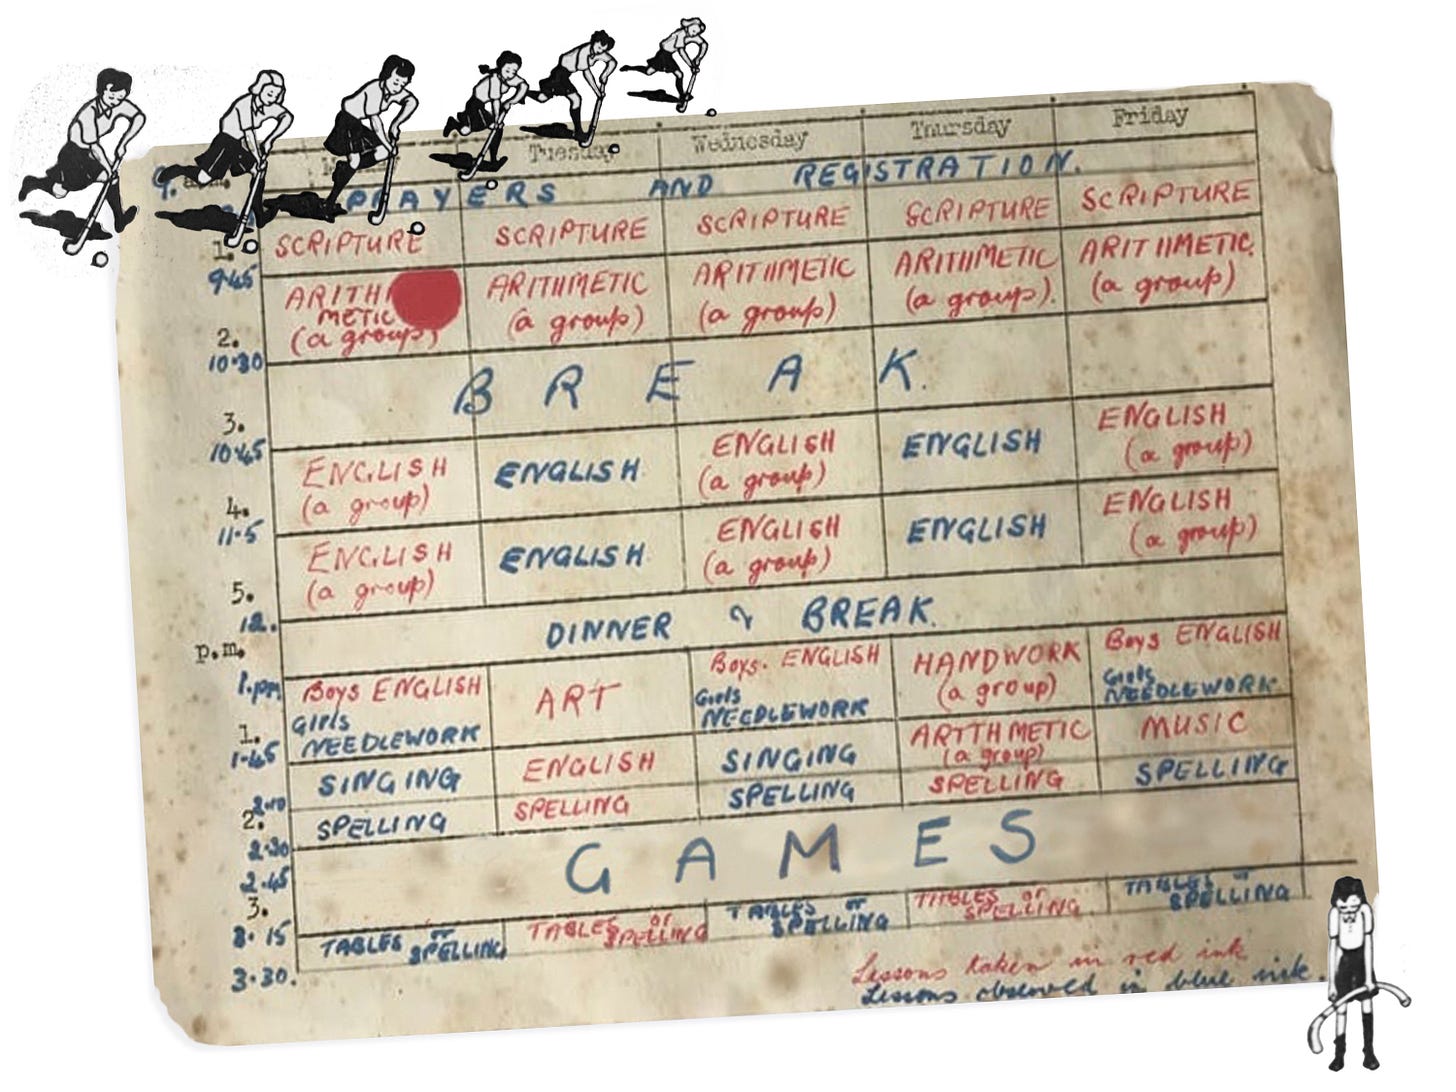 Tuesday Wednesday Thursday Friday
9. a.m. PRAYERS AND REGISTRATION.
1. SCRIPTURE SCRIPTURE SCRIPTURE SCRIPTURE SCRIPTURE
9.45
ARITH ARITHMETIC ARITHMETIC ARITHMETIC ARITHMETIC.
METIC
(a group) (a group) (a group) (a group). (a group)
2.
10.30 BREAK.
3.
10.45 ENGLISH ENGLISH ENGLISH ENGLISH ENGLISH
(a group) (a group) (a group)
4.
11.5 ENGLISH ENGLISH. ENGLISH ENGLISH ENGLISH
(a group) (a group) (a group)
5.
12. DINNER & BREAK.
p.m.
1.pm Boys ENGLISH ART Boys. ENGLISH HANDWORK Boys ENGLISH
Girls Girls (a group) Girls
NEEDLEWORK NEEDLEWORK NEEDLEWORK
1.
1.45 SINGING ENGLISH SINGING ARITHMETIC MUSIC
(a group)
2.10 SPELLING SPELLING SPELLING SPELLING SPELLING
2.
2.30 GAMES
2.45
3. TABLES or TABLES or TABLES or TABLES or TABLES or
SPELLING SPELLING SPELLING SPELLING SPELLING
3.15
3.30.
Lessons taken in red ink
Lessons observed in blue ink.